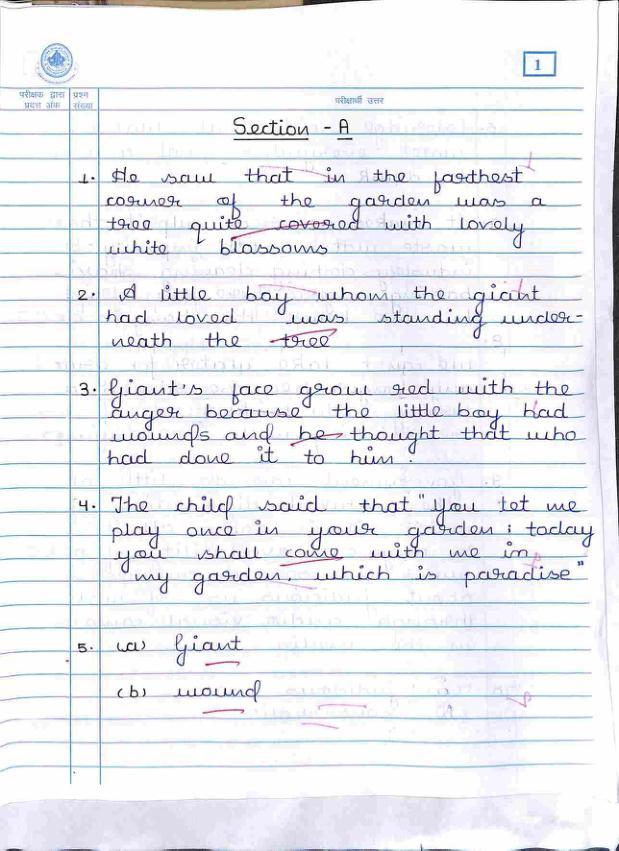 1
परीक्षक द्वारा प्रदत्त अंक
प्रश्न संख्या
परीक्षार्थी उत्तर
Section - A
1. He saw that in the farthest
corner of the garden was a
tree quite covered with lovely
white blossoms
2. A little boy whom the giant
had loved was standing under-
neath the tree
3. Giant's face grow red with the
anger because the little boy had
wounds and he thought that who
had done it to him.
4. The child said that "You let me
play once in your garden; today
you shall come with me in
my garden, which is paradise"
5. (a) Giant
(b) wound